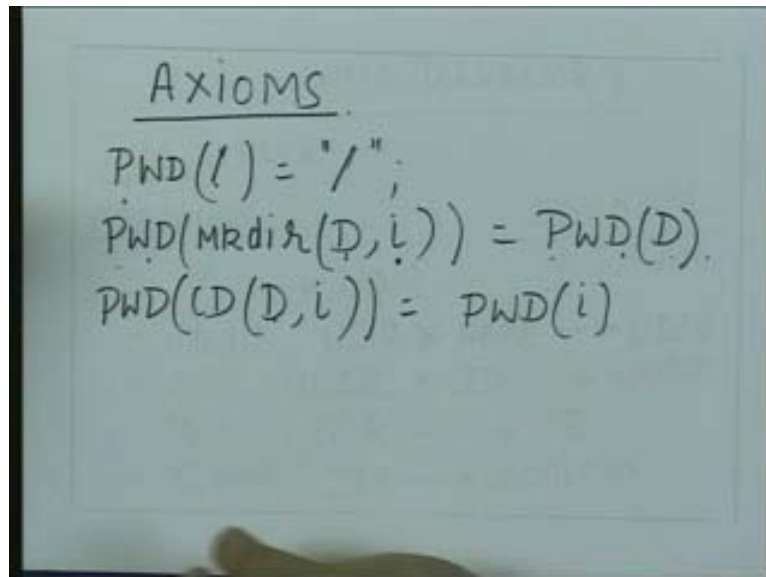 AXIOMS.
PWD(/) = "/";
PWD(MKdir(D,i)) = PWD(D).
PWD(CD(D,i)) = PWD(i)